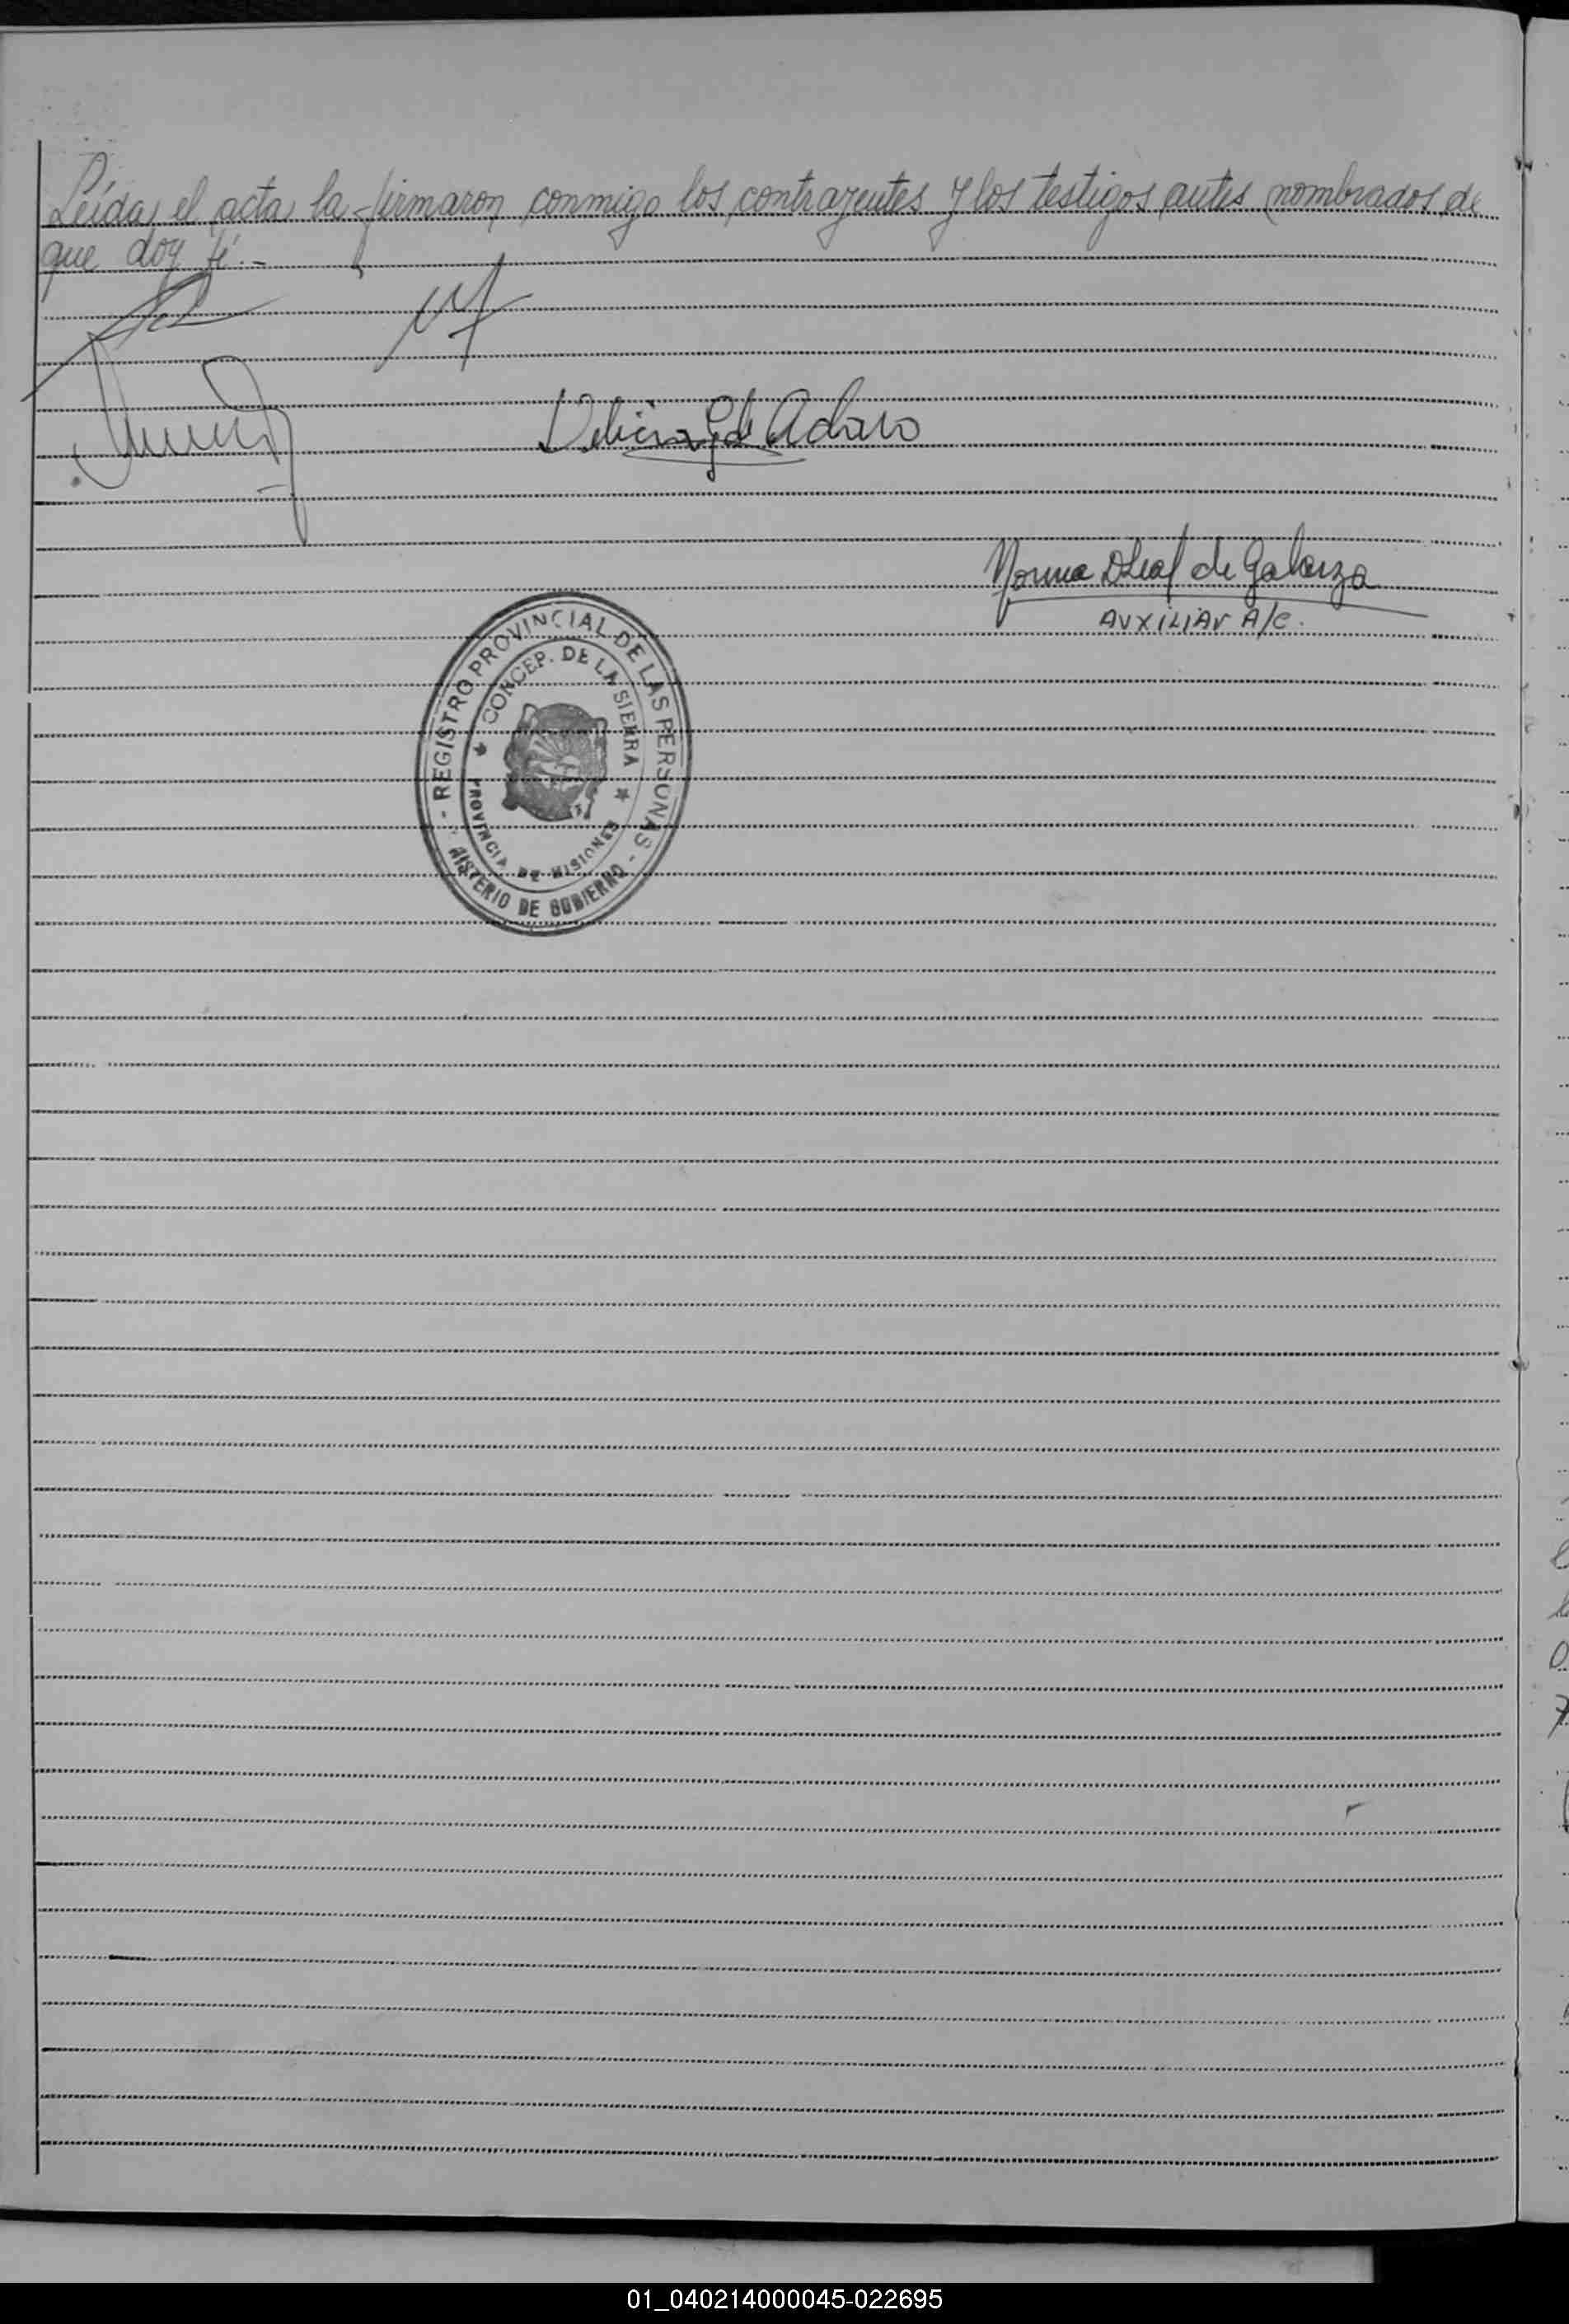 Leída el acta la firmaron conmigo los contrayentes y los testigos antes nombrados de
que doy fé.-
Delicia G. de Adaro
Norma D Leal de Galarza
AUXILIAR A/C.
- REGISTRO PROVINCIAL DE LAS PERSONAS -
CONCEP. DE LA SIERRA
PROVINCIA DE MISIONES
NISTERIO DE GOBIERNO
01_040214000045-022695